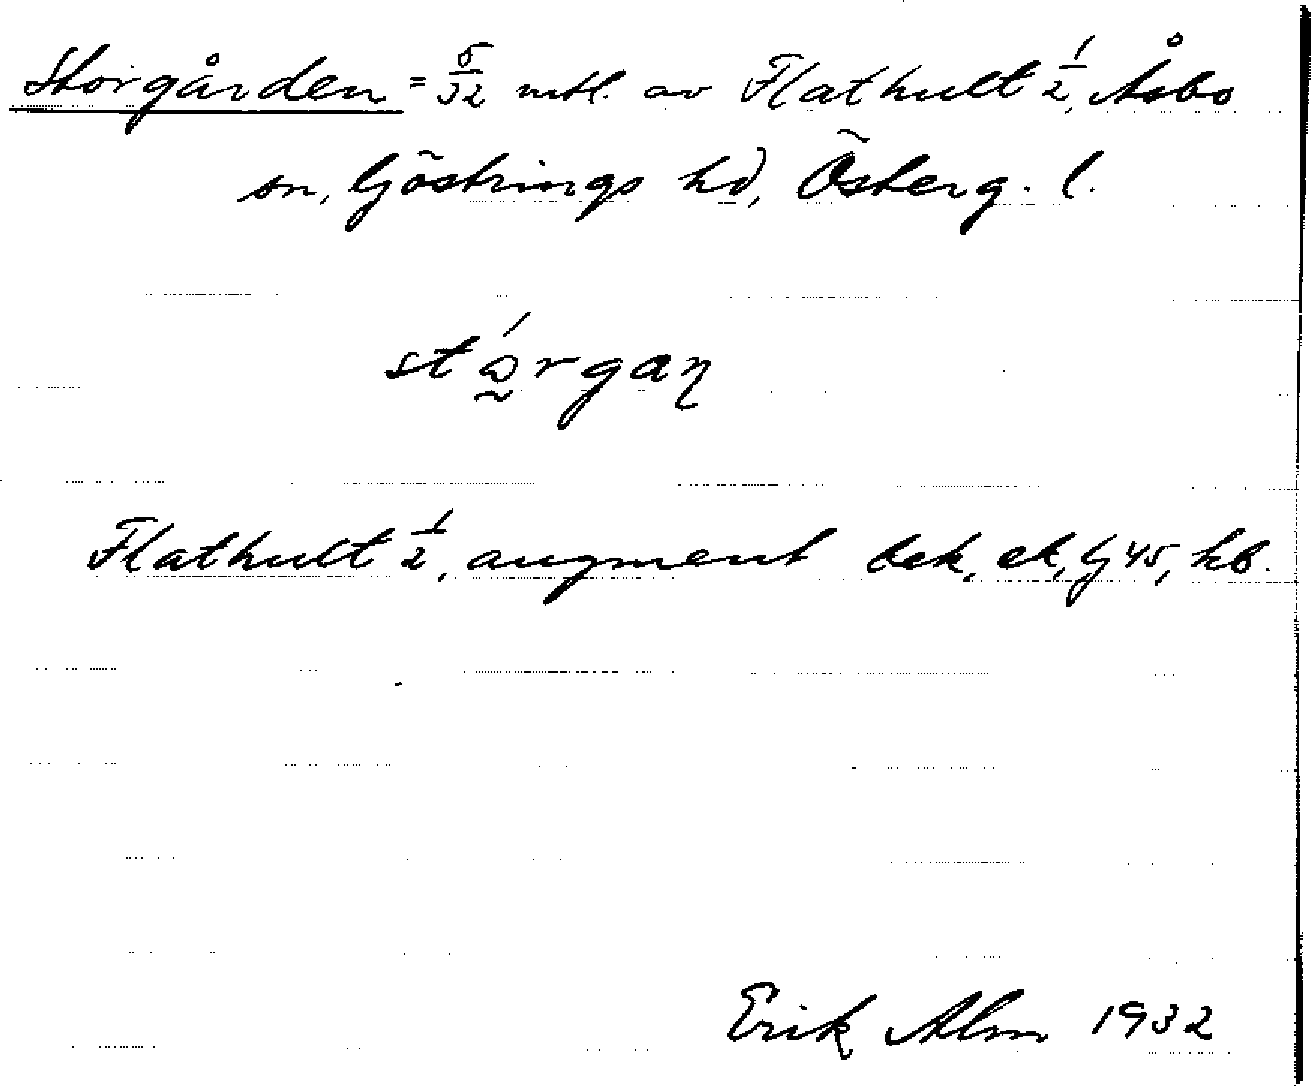 Storgården = 5/32 mtl. av Flathult 1/2, Åsbo
sn, Göstrings hd, Österg. l.
Flathult 1/2, augment dek, ek, Gj 45, hb.
Erik Alm 1932